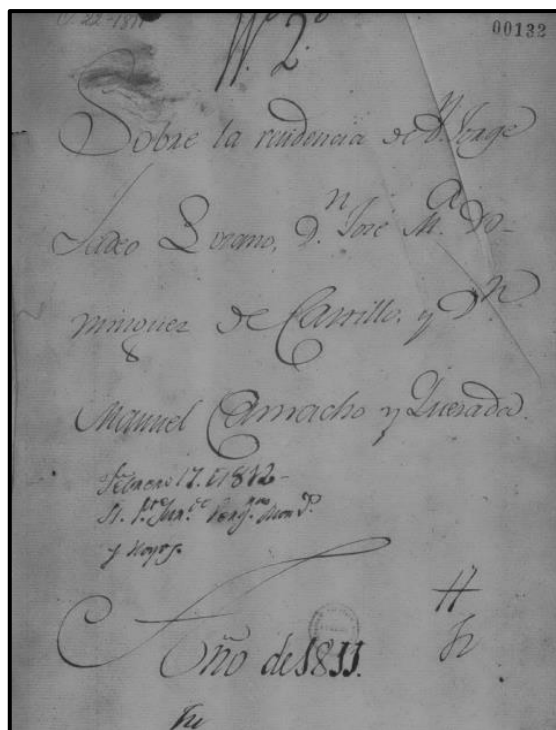 00132
N.º 2.º
Sobre la residencia de Dn. Jorge
Tadeo Lozano, D.n Jose M.a Do-
minguez de Castillo. y D.n
Manuel Camacho y Quesada.
Febrero 17. 1812-
y Hoyos.
Año de 1811.